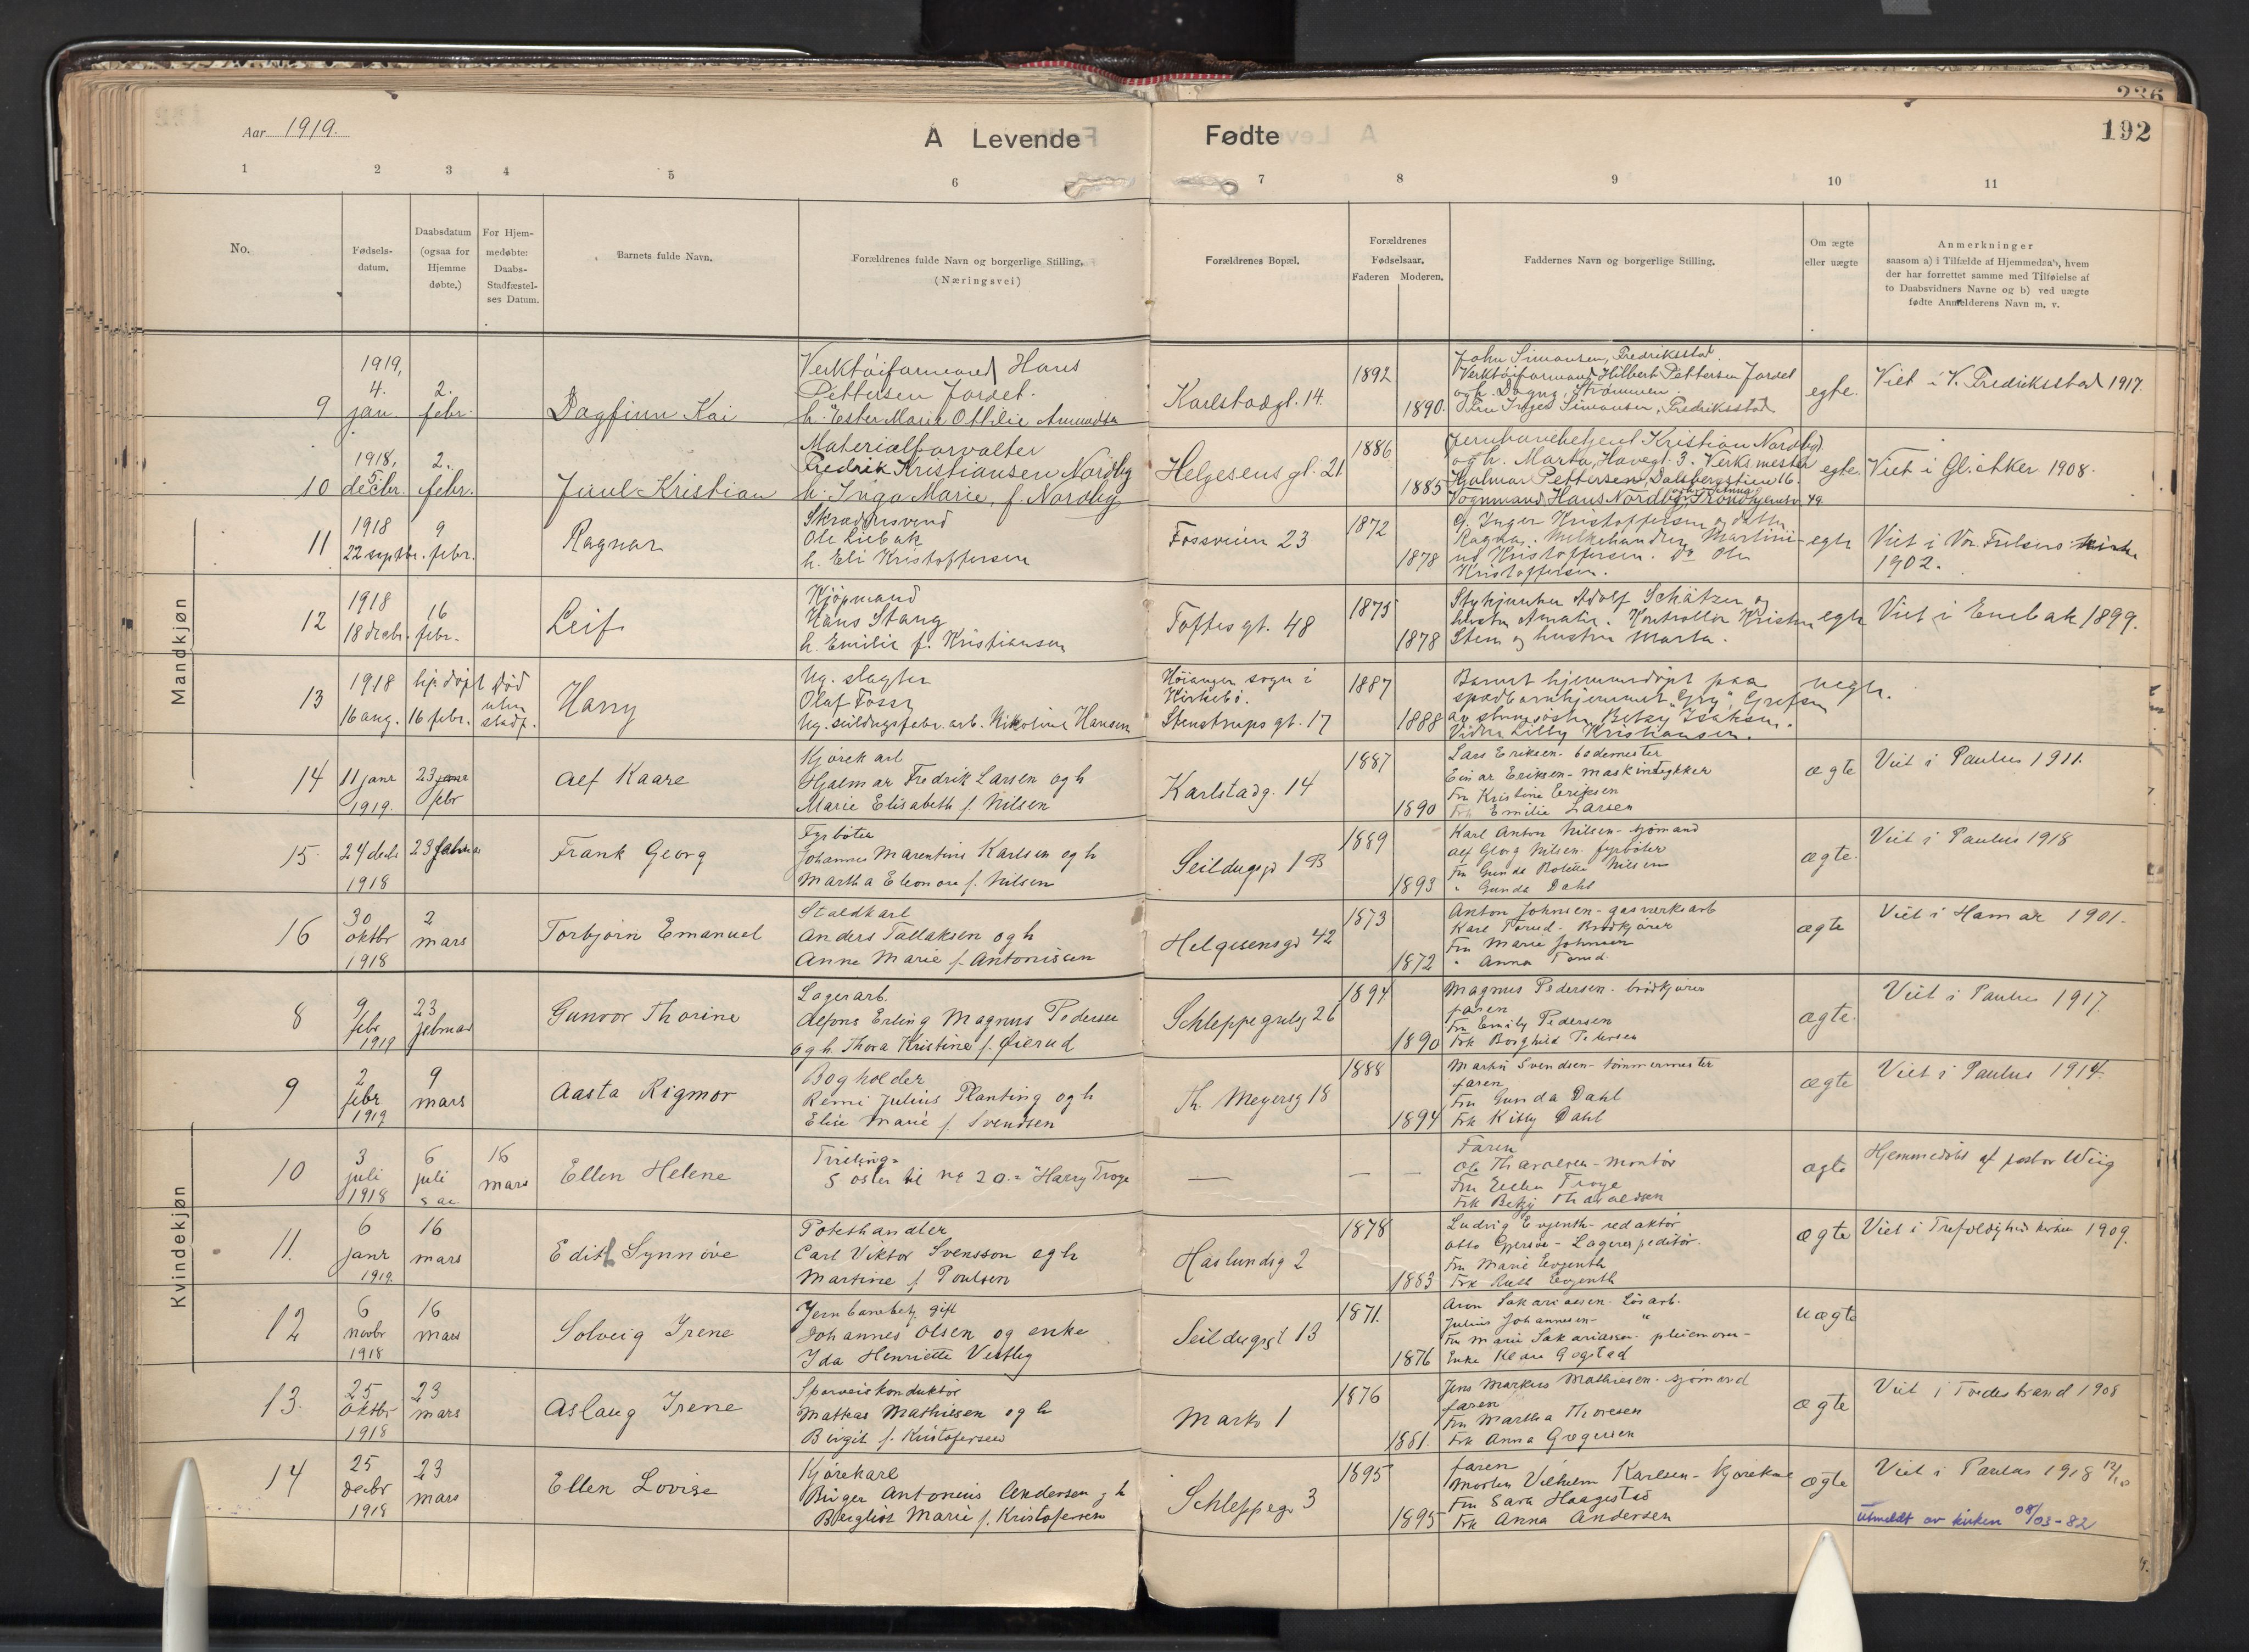 236
192
Aar 1919.
A Levende
Fødte
1
2
3
4
5
6
7
8
9
10
11
No.
Fødsels-
datum.
Daabsdatum
(ogsaa for
Hjemme
døbte.)
For Hjem-
medøbte:
Daabs-
Stadfæstel-
ses Datum.
Barnets fulde Navn.
Forældrenes fulde Navn og borgerlige Stilling.
(Næringsvei)
Forældrenes Bopæl.
Forældrenes
Fødselsaar.
Faderen Moderen.
Faddernes Navn og borgerlige Stilling.
Om ægte
eller uægte
Anmerkninger
saasom a) i Tilfælde af Hjemmedaab, hvem
der har forrettet samme med Tilføielse af
to Daabsvidners Navne og b) ved uægte
fødte Anmelderens Navn m. v.
Mandkjøn
9
1919,
4.
jan.
2.
febr.
Dagfinn Kai
Verktøiformand Hans
Pettersen Jordet.
h. Ester Marie Ottilie Amundsen
Karlstadgt. 14.
1892
1890.
John Simonsen, Fredriksstad.
Verktøiformand Hilbert Pettersen Jordet
og h. Dagny, Strømmen
Fru Inga Simonsen, Fredriksstad
egte.
Viet i V. Fredriksstad 1917
10
1918,
5.
decbr.
2.
febr.
Juul Kristian
Materialforvalter
Fredrik Kristiansen Nordby
h. Inga Marie, f. Nordby
Helgesens gt. 21.
1886
1885
Jernbanebetjent Kristian Nordby
og h. Marta, Havegt. 3. Verksmester
Hjalmar Pettersen, Dalsbergstien 16.
Vognmand Hans Nordby, Trondhjemsv. 49.
egte.
Viet i Gl. Aker 1908.
11
1918
22 septbr.
9
febr.
Ragnar
Skræddersvend
Ole Liebak
h. Eli Kristoffersen
Fossveien 23
1872
1878
G. Inger Kristoffersen og datter
Ragna. Melkehandler Martini-
us Kristoffersen. Do Ole
Kristoffersen.
egte
Viet i Vor Frelsers Kirke
1902.
12
1918
18 decbr.
16
febr.
Leif
Kjøpmand
Hans Stang
h. Emilie f. Kristiansen
Toftes gt. 48
1875
1878
Stykjunker Adolf Schätzer og
hustru Amalie. Kontrollør Kristen
Sten og hustru Marta.
egte
Viet i Enebak 1899.
13
1918
16 aug.
hj. døpt
16 febr.
Død
uten
stadf.
Harry
Ug. slagter
Olaf Foss
Ug. seildugsfabr. arb. Nikoline Hansen
Høianger sogn i
Kirkebø.
Stenstrups gt. 17
1887
1888
Barnet hjemmedøpt paa
spædbarnhjemmet "Gry", Grefsen
av stuesøster Betzy Isaksen.
Vidne Lilly Kristiansen.
uegte.
14
11 janr
1919.
23 janr
febr
Alf Kaare
Kjørekarl
Hjalmar Fredrik Larsen og h
Marie Elisabeth f. Nilsen
Karlstadg. 14
1887
1890
Lars Eriksen - bademester
Einar Eriksen - maskintrykker
Fru Kristine Eriksen
Frk Emilie Larsen
ægte
Viet i Paulus 1911.
15.
24 decbr
1918
23 februar
Frank Georg
Fyrbøter
Johannes Marentius Karlsen og h
Martha Eleonore f. Nilsen
Seildugsgd 1 B
1889
1893
Karl Anton Nilsen - sjømand
Alf Georg Nilsen fyrbøter
Fru Gunda Bolette Nilsen
" Gunda Dahl
ægte.
Viet i Paulus 1918
16
30
oktbr
1918
2
mars
Torbjørn Emanuel
Staldkarl
Anders Tallaksen og h
Anne Marie f. Antonissen
Helgesensgd 42
1873
1872
Anton Johnsen - gasverksarb
Karl Torud - Brødkjører
Fru Marie Johnsen
" Anna Torud
ægte
Viet i Hamar 1901.
8
9
febr
1919
23
februar
Gunvor Thorine
Lagerarb.
Alfons Erling Magnus Pedersen
og h. Thora Kristine f. Øierud
Schleppegrelsg 26
1894
1890
Magnus Pedersen - brødkjører
faren
Fru Emily Pedersen
Frk Borghild Pedersen
ægte.
Viet i Paulus 1917.
9
2
febr
1919
9
mars
Aasta Rigmor
Bogholder
Remi Julius Planting og h
Elise Marie f. Svendsen
Th. Meyersg 18
1888
1894
Martin Svendsen - tømmermester
faren
Fru Gunda Dahl
Frk Kitty Dahl
ægte
Viet i Paulus 1914.
Kvindekjøn
10
3
juli
1918
6
juli
s. a.
16
mars
Ellen Helene
Tvilling-
søster til no 20 - "Harry Troye
—
— —
Faren
Ole Tharaldsen - montør
Fru Ellen Troye
Frk Betzy Tharaldsen
ægte
Hjemmedøbt af pastor Wiig
11.
6
janr
1919.
16
mars
Edith Synnøve
Potethandler
Carl Viktor Svensson og h
Martine f. Poulsen
Haslundsg 2
1878
1883
Ludvig Evjenth - redaktør
Otto Gjersøe - Lagerexpeditør.
Fru Marie Evjenth
Frk Ruth Evjenth
ægte
Viet i Trefoldighedskirken 1909.
12
6
novbr
1918
16
mars
Solveig Irene
Jernbanebetj. gift
Johannes Olsen og enke
Ida Henriette Vestby
Seildugsgt 13
1871.
1876
Aron Sakariassen - Løsarb.
Julius Johannesen - "
Fru Marie Sakariassen - pleiemoren -
Enke Klara Gogstad
uægte
13.
25
oktbr
1918
23
mars
Aslaug Irene
Sporveiskonduktør
Mathias Mathisen og h
Birgit f. Kristofersen
Markv 1
1876
1881.
Jens Markus Mathiesen - sjømand
faren
Fru Martha Thoresen
Frk Anna Gregersen
ægte
Viet i Tvedestrand 1908
14
25
decbr
1918
23
mars
Ellen Lovise
Kjørekarl
Birger Antonius Andersen og h
Bergliot Marie f. Kristofersen
Schleppegr 3
1895
1895
faren
Morten Vilhelm Karlsen - Kjørekarl
Fru Sara Haagestad
Frk Anna Andersen
ægte
Viet i Paulus 1918 12/10
Utmeldt av kirken 08/03-82